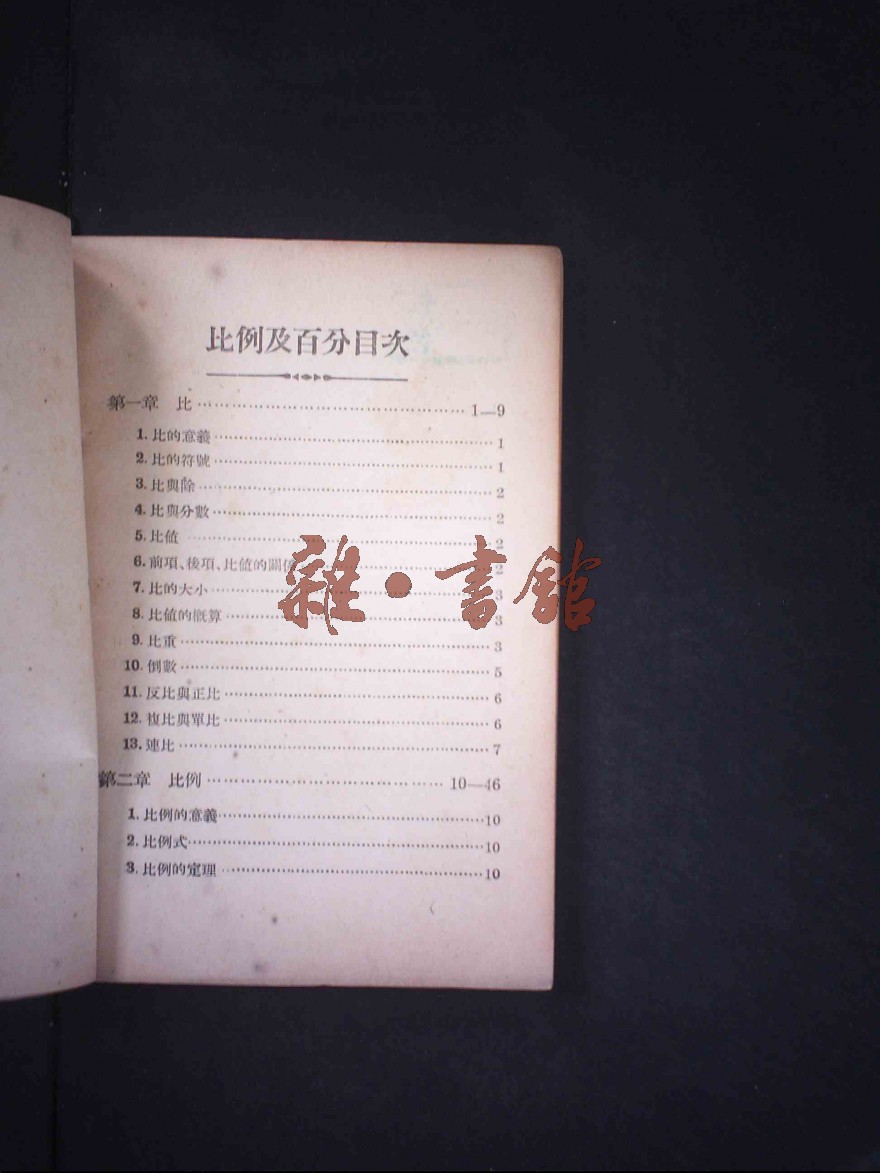 比例及百分目次
第一章　比……………………………………1—9
1. 比的意義……………………………………1
2. 比的符號……………………………………1
3. 比與除……………………………………2
4. 比與分數……………………………………2
5. 比値……………………………………2
6. 前項、後項、比値的關係……………………2
7. 比的大小……………………………………3
8. 比値的概算……………………………………3
9. 比重……………………………………3
10. 倒數……………………………………5
11. 反比與正比……………………………………6
12. 複比與單比……………………………………6
13. 連比……………………………………7
第二章　比例……………………………………10—46
1. 比例的意義……………………………………10
2. 比例式……………………………………10
3. 比例的定理……………………………………10
雜·書館